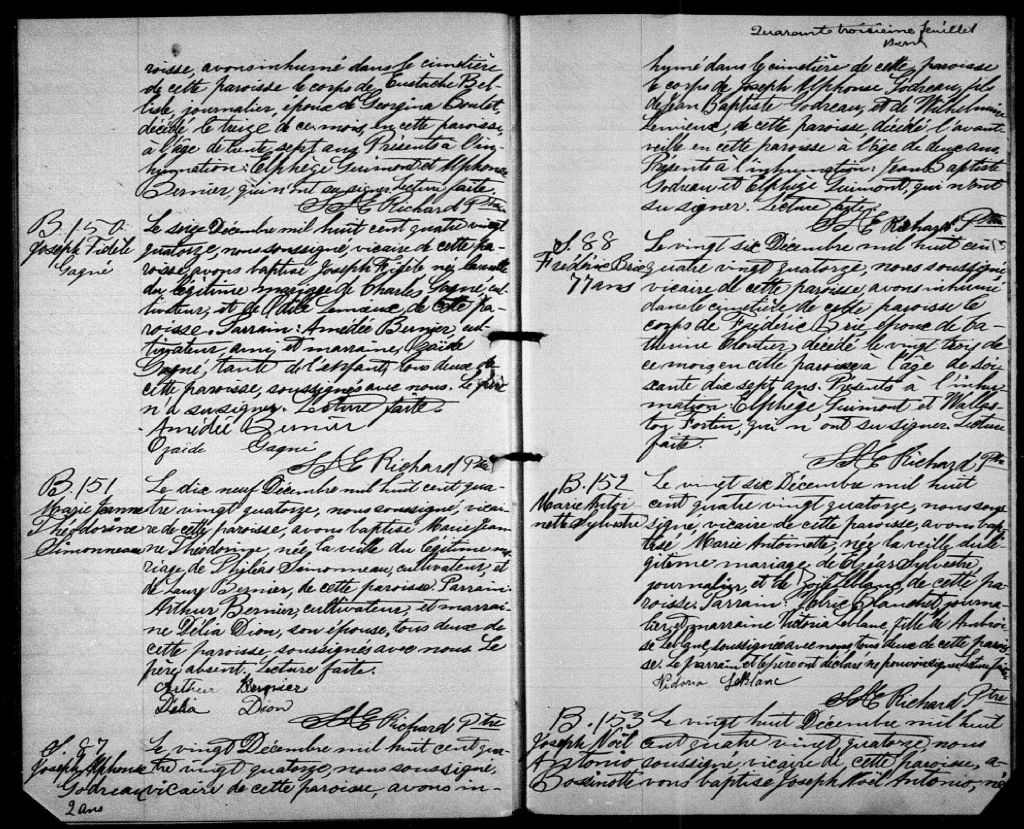 roisse, avons inhumé dans le cimetière
de cette paroisse le corps de Eustache Bel-
lisle, journalier, époux de Georgina Boulet,
décédé le treize de ce mois, en cette paroisse,
à l'âge de trente sept ans. Présents à l'in-
humation: Elphège Guimont et Alphonse
Bernier, qui n'ont su signer. Lecture faite.
Richard Ptre
B. 150
Joseph Fidèle
Gagné
Le seize Décembre mil huit cent quatre vingt
quatorze, nous soussigné, vicaire de cette pa-
roisse, avons baptisé Joseph Fidèle né, la veille
du légitime mariage de Charles Gagné, cul-
tivateur, et de Odile Lemieux, de cette pa-
roisse. Parrain: Amédée Bernier, cul-
tivateur, ami, et marraine, Ozaide
Gagné, tante de l'enfant, tous deux de
cette paroisse, soussignés avec nous. Le père
n'a su signer. Lecture faite.
Amédée Bernier
Ozaide Gagné
Richard Ptre
B. 151
Marie Jeanne
Théodorène
Simonneau
Le dix neuf Décembre mil huit cent qua-
tre vingt quatorze, nous soussigné, vicai-
re de cette paroisse, avons baptisé Marie Jean
ne née, la veille du légitime ma-
riage de Philéas Simonneau, cultivateur, et
de Laury Bernier, de cette paroisse. Parrain
Arthur Bernier, cultivateur, et marrai-
ne Délia Dion, son épouse, tous deux de
cette paroisse, soussignés avec nous. Le
père absent. Lecture faite.
Arthur Bernier
Délia Dion
Richard Ptre
S. 87
Joseph Alphonse
Godreau
2 ans
Le vingt Décembre mil huit cent qua-
tre vingt quatorze, nous soussigné,
vicaire de cette paroisse, avons in-
Quarante troisième feuillet
humé dans le cimetière de cette paroisse
le corps de Joseph Alphonse Godreau, fils
de Jean Baptiste Godreau, et de Wilhelmine
Lemieux, de cette paroisse décédé l'avant
veille en cette paroisse à l'âge de deux ans.
Présents à l'inhumation: Jean Baptiste
Godreau et Elphège Guimont, qui n'ont
su signer. Lecture faite.
Richard Ptre
S. 88
Frédéric Brie
77 ans
Le vingt six Décembre mil huit cent
quatre vingt quatorze, nous soussigné
vicaire de cette paroisse, avons inhumé
dans le cimetière de cette paroisse le
corps de Frédéric Brie, époux de Ca-
therine Cloutier, décédé le vingt trois de
ce mois en cette paroisse à l'âge de soi-
xante dix sept ans. Présents à l'inhu-
mation Elphège Guimont et Wallas-
Fortin, qui n'ont su signer. Lecture
faite.
Richard Ptre
B. 152
Marie Antoi
nette Sylvestre
Le vingt six Décembre mil huit
cent quatre vingt quatorze, nous sous-
signé, vicaire de cette paroisse, avons bap-
tisé, Marie Antoinette, née la veille du lé-
gitime mariage de Sylvestre,
journalier, et de Zoé Leblanc, de cette pa-
roisse. Parrain: Blanchet, journa-
lier, et marraine Victoria Leblanc, fille de Ambroi-
se Leblanc, soussignée avec nous, tous deux de cette parois-
se. Le parrain et le père ont déclaré ne pouvoir signer.
Victoria LeBlanc
Richard Ptre
B. 153
Joseph Noël
Antonio
Bossinotte
Le vingt huit Décembre mil huit
cent quatre vingt quatorze, nous
soussigné vicaire de cette paroisse, a-
vons baptisé Joseph Noël Antonio, né